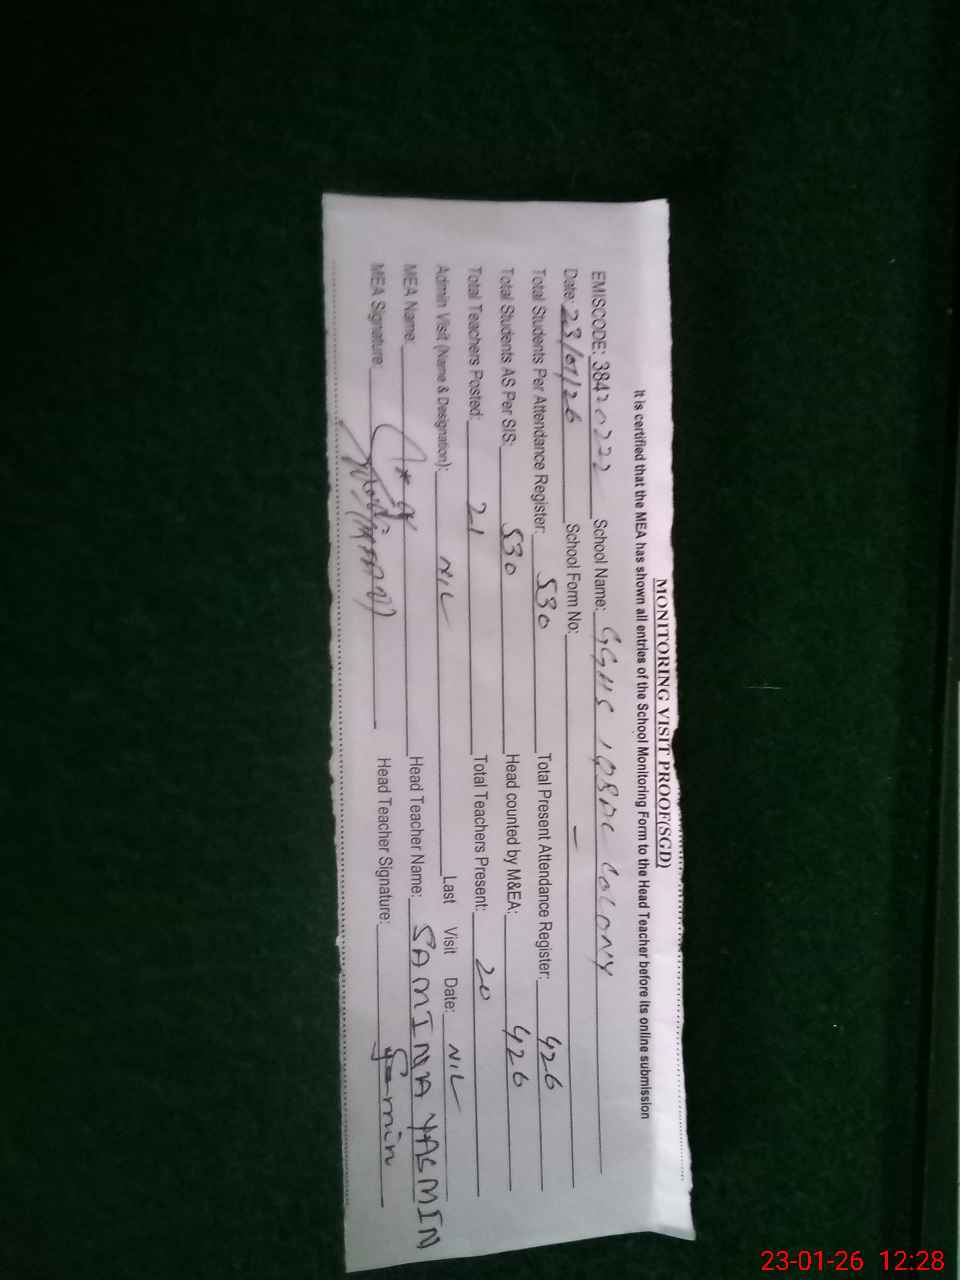 MONITORING VISIT PROOF(SGD)
It is certified that the MEA has shown all entries of the School Monitoring Form to the Head Teacher before its online submission
EMISCODE: 38420222 School Name: GGHS IQBAL COLONY
Date: 23/01/26 School Form No: —
Total Students Per Attendance Register: 530 Total Present Attendance Register: 426
Total Students AS Per SIS: 530 Head counted by M&EA: 426
Total Teachers Posted: 21 Total Teachers Present: 20
Admin Visit (Name & Designation): NIL Last Visit Date: NIL
MEA Name: Head Teacher Name: SAMINA YASMIN
MEA Signature: Head Teacher Signature:
23-01-26 12:28